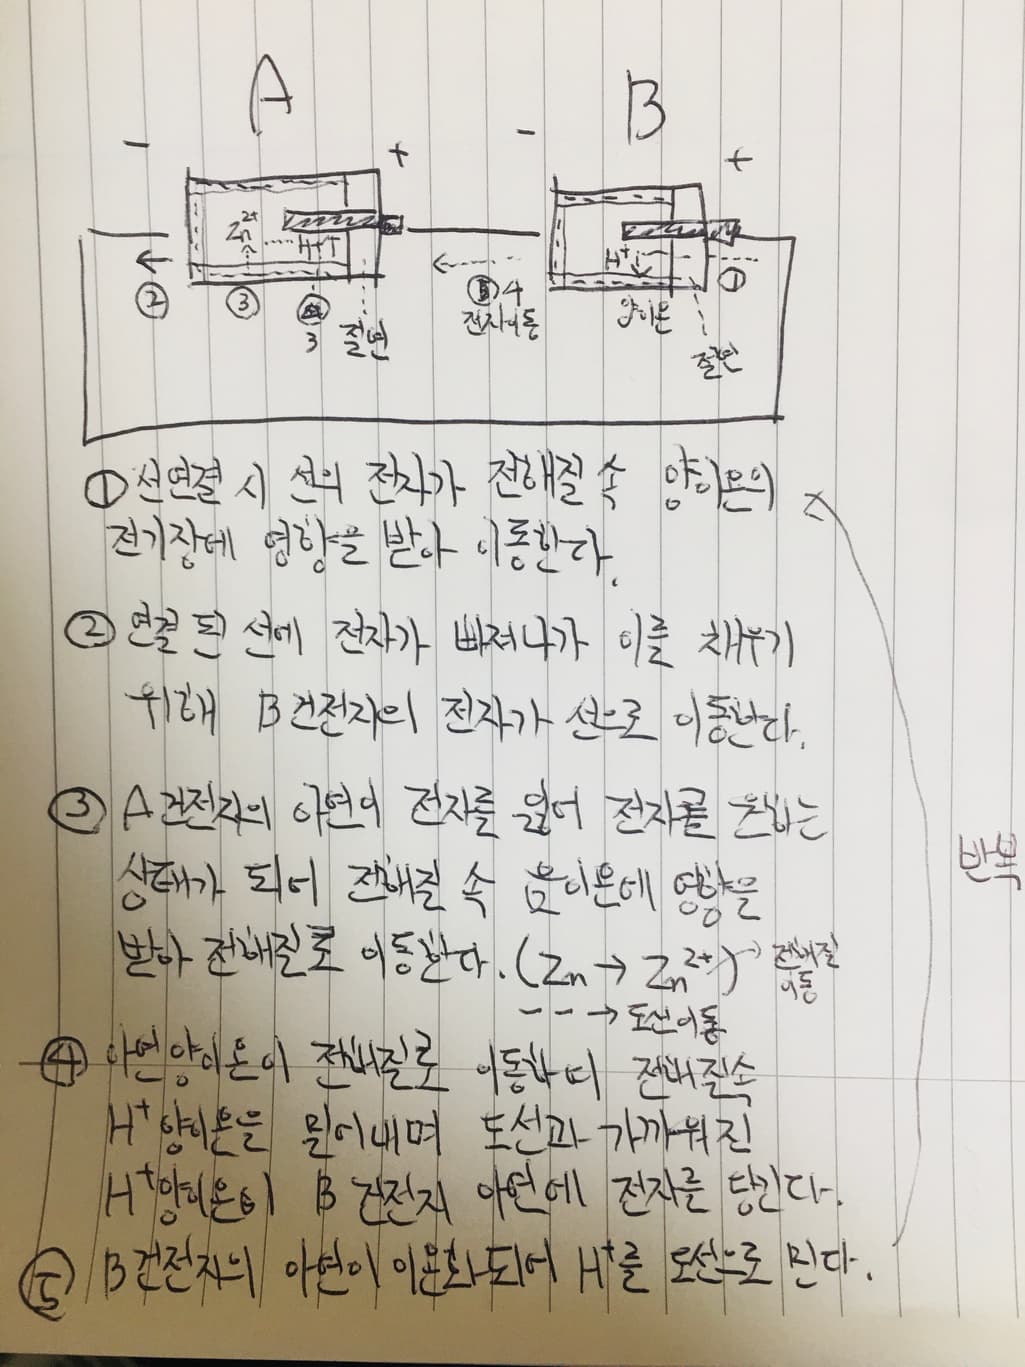 A
B
- + - +
Zn²⁺ H⁺ H⁺
② ③ 3 절연 4 전자이동 양이온 ①
절연
① 선연결 시 선의 전자가 전해질 속 양이온의
전기장에 영향을 받아 이동한다.
② 연결 된 선에 전자가 빠져나가 이를 채우기
위해 B건전지의 전자가 선으로 이동한다.
③ A건전지의 아연이 전자를 잃어 전자를 원하는
상태가 되어 전해질 속 음이온에 영향을
받아 전해질로 이동한다. (Zn → Zn²⁺) → 전해질
이동
---→ 도선이동
④ 아연양이온이 전해질로 이동하며 전해질속
H⁺양이온을 밀어내며 도선과 가까워진
H⁺양이온이 B 건전지 아연에 전자를 당긴다.
⑤ B건전지의 아연이 이온화되어 H⁺를 도선으로 민다.
반복